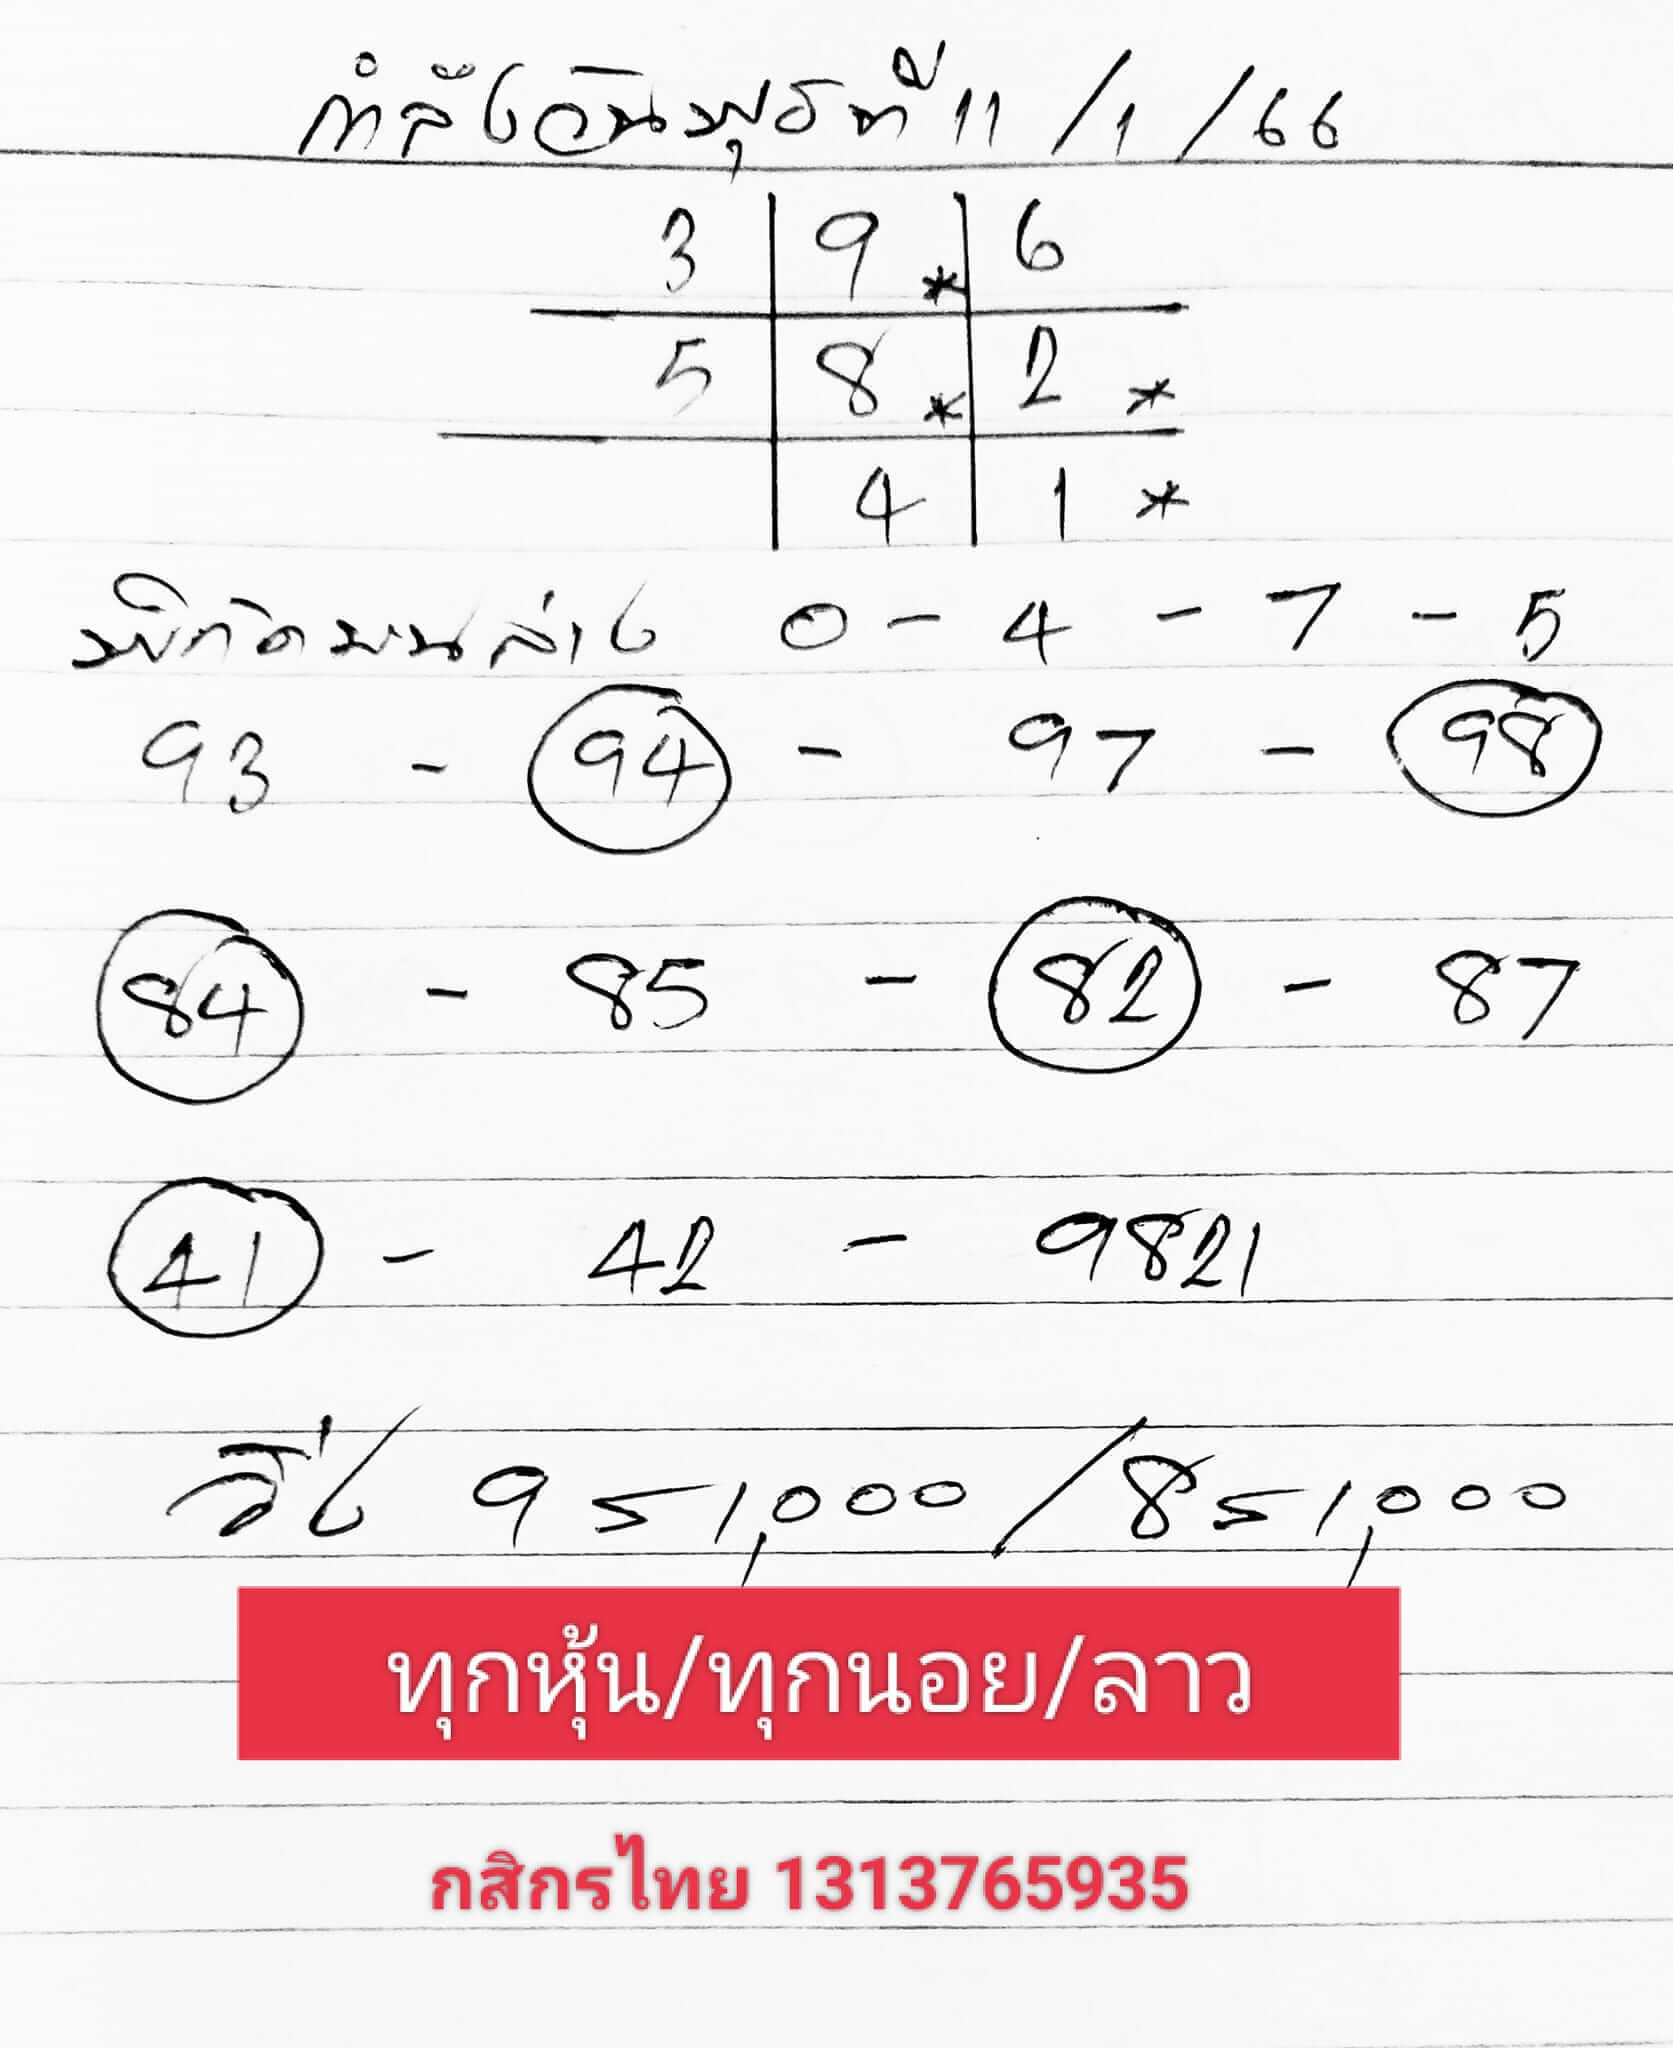 กำลังวันพุธที่ 11/1/66
3 9* 6
5 8* 2*
4 1*
พิกัดบนล่าง 0 - 4 - 7 - 5
93 - 94 - 97 - 98
84 - 85 - 82 - 87
41 - 42 - 9821
วิ่ง 951,000/851,000
ทุกหุ้น/ทุกนอย/ลาว
กสิกรไทย 1313765935